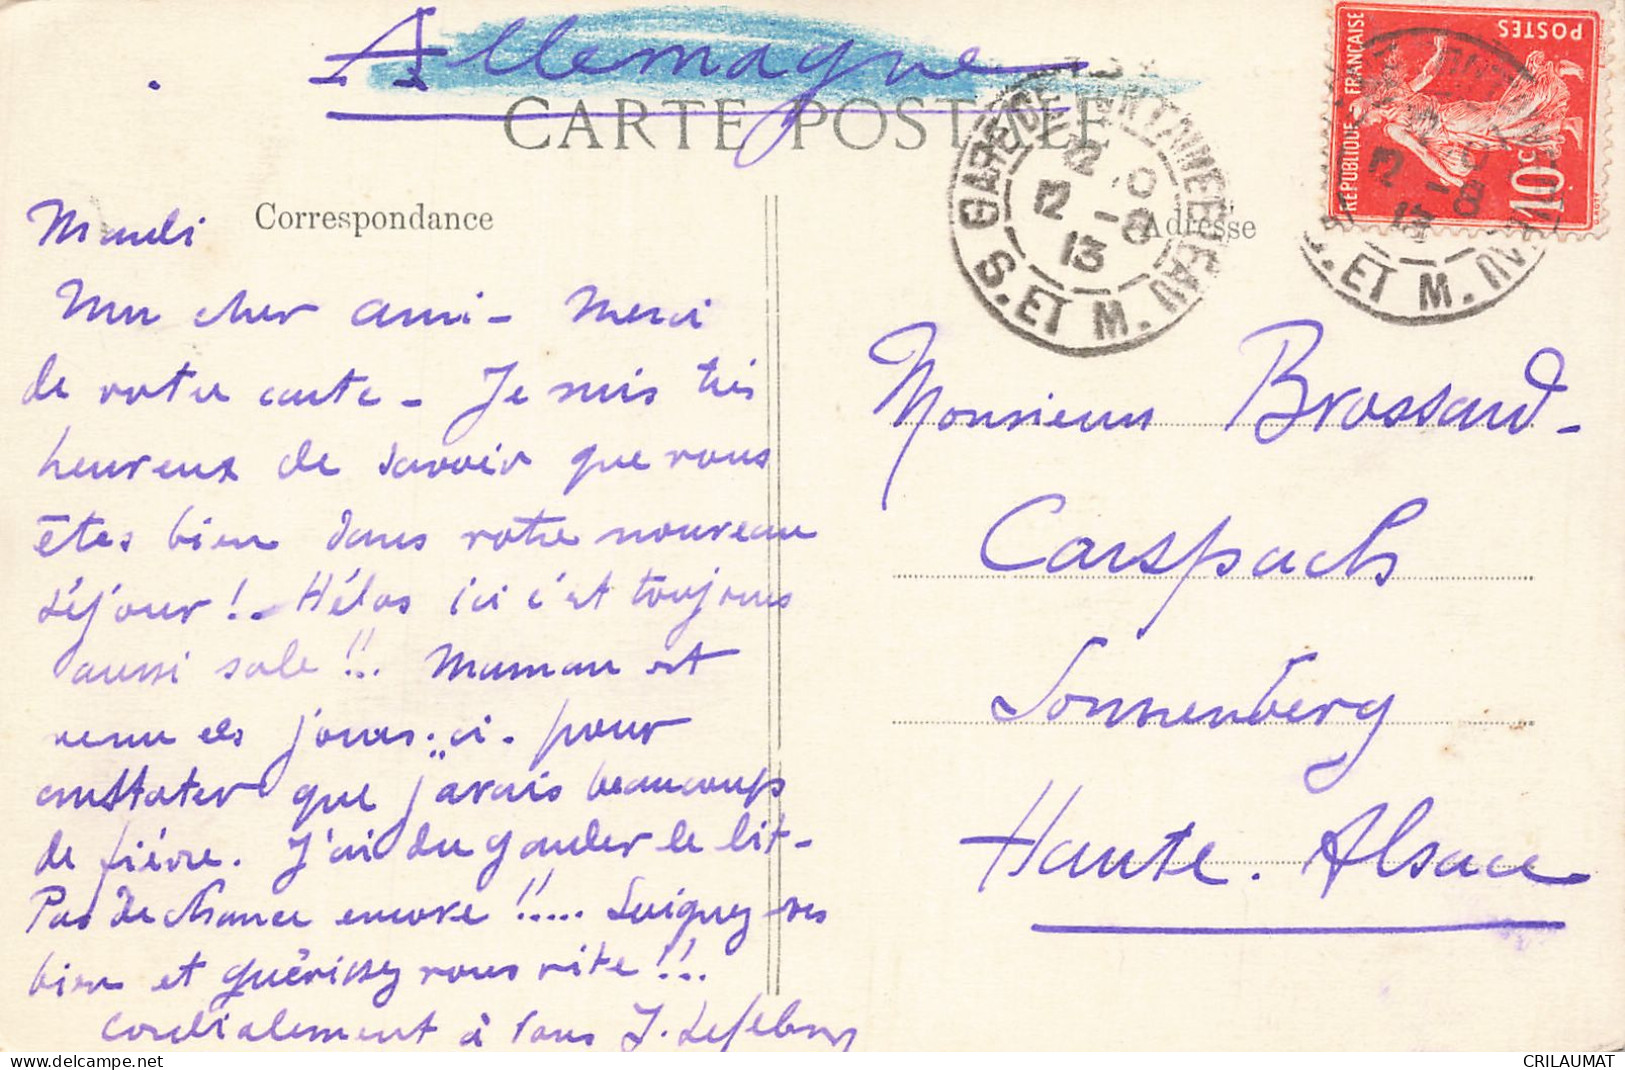 Allemagne
CARTE POSTALE
Correspondance
Adresse
POSTES
REPUBLIQUE FRANÇAISE
10c
GARE DE FONTAINEBLEAU
12 -8
13
S. ET M.
12 -8
13
S. ET M.
Mardi
Mon cher ami - Merci
de votre carte - Je suis très
heureux de savoir que vous
êtes bien dans votre nouveau
séjour !. Hélas ici c'est toujours
aussi sale !!.. Maman est
venue ces jours-ci. pour
constater que j'avais beaucoup
de fièvre. J'ai du garder le lit -
Pas de chance encore !!..... Soignez vous
bien et guérissez vous vite !!..
Cordialement à vous J. Lefebvre
Monsieur Brossard -
Carspach
Sonnenberg
Haute. Alsace
delcampe.net
CRILAUMAT